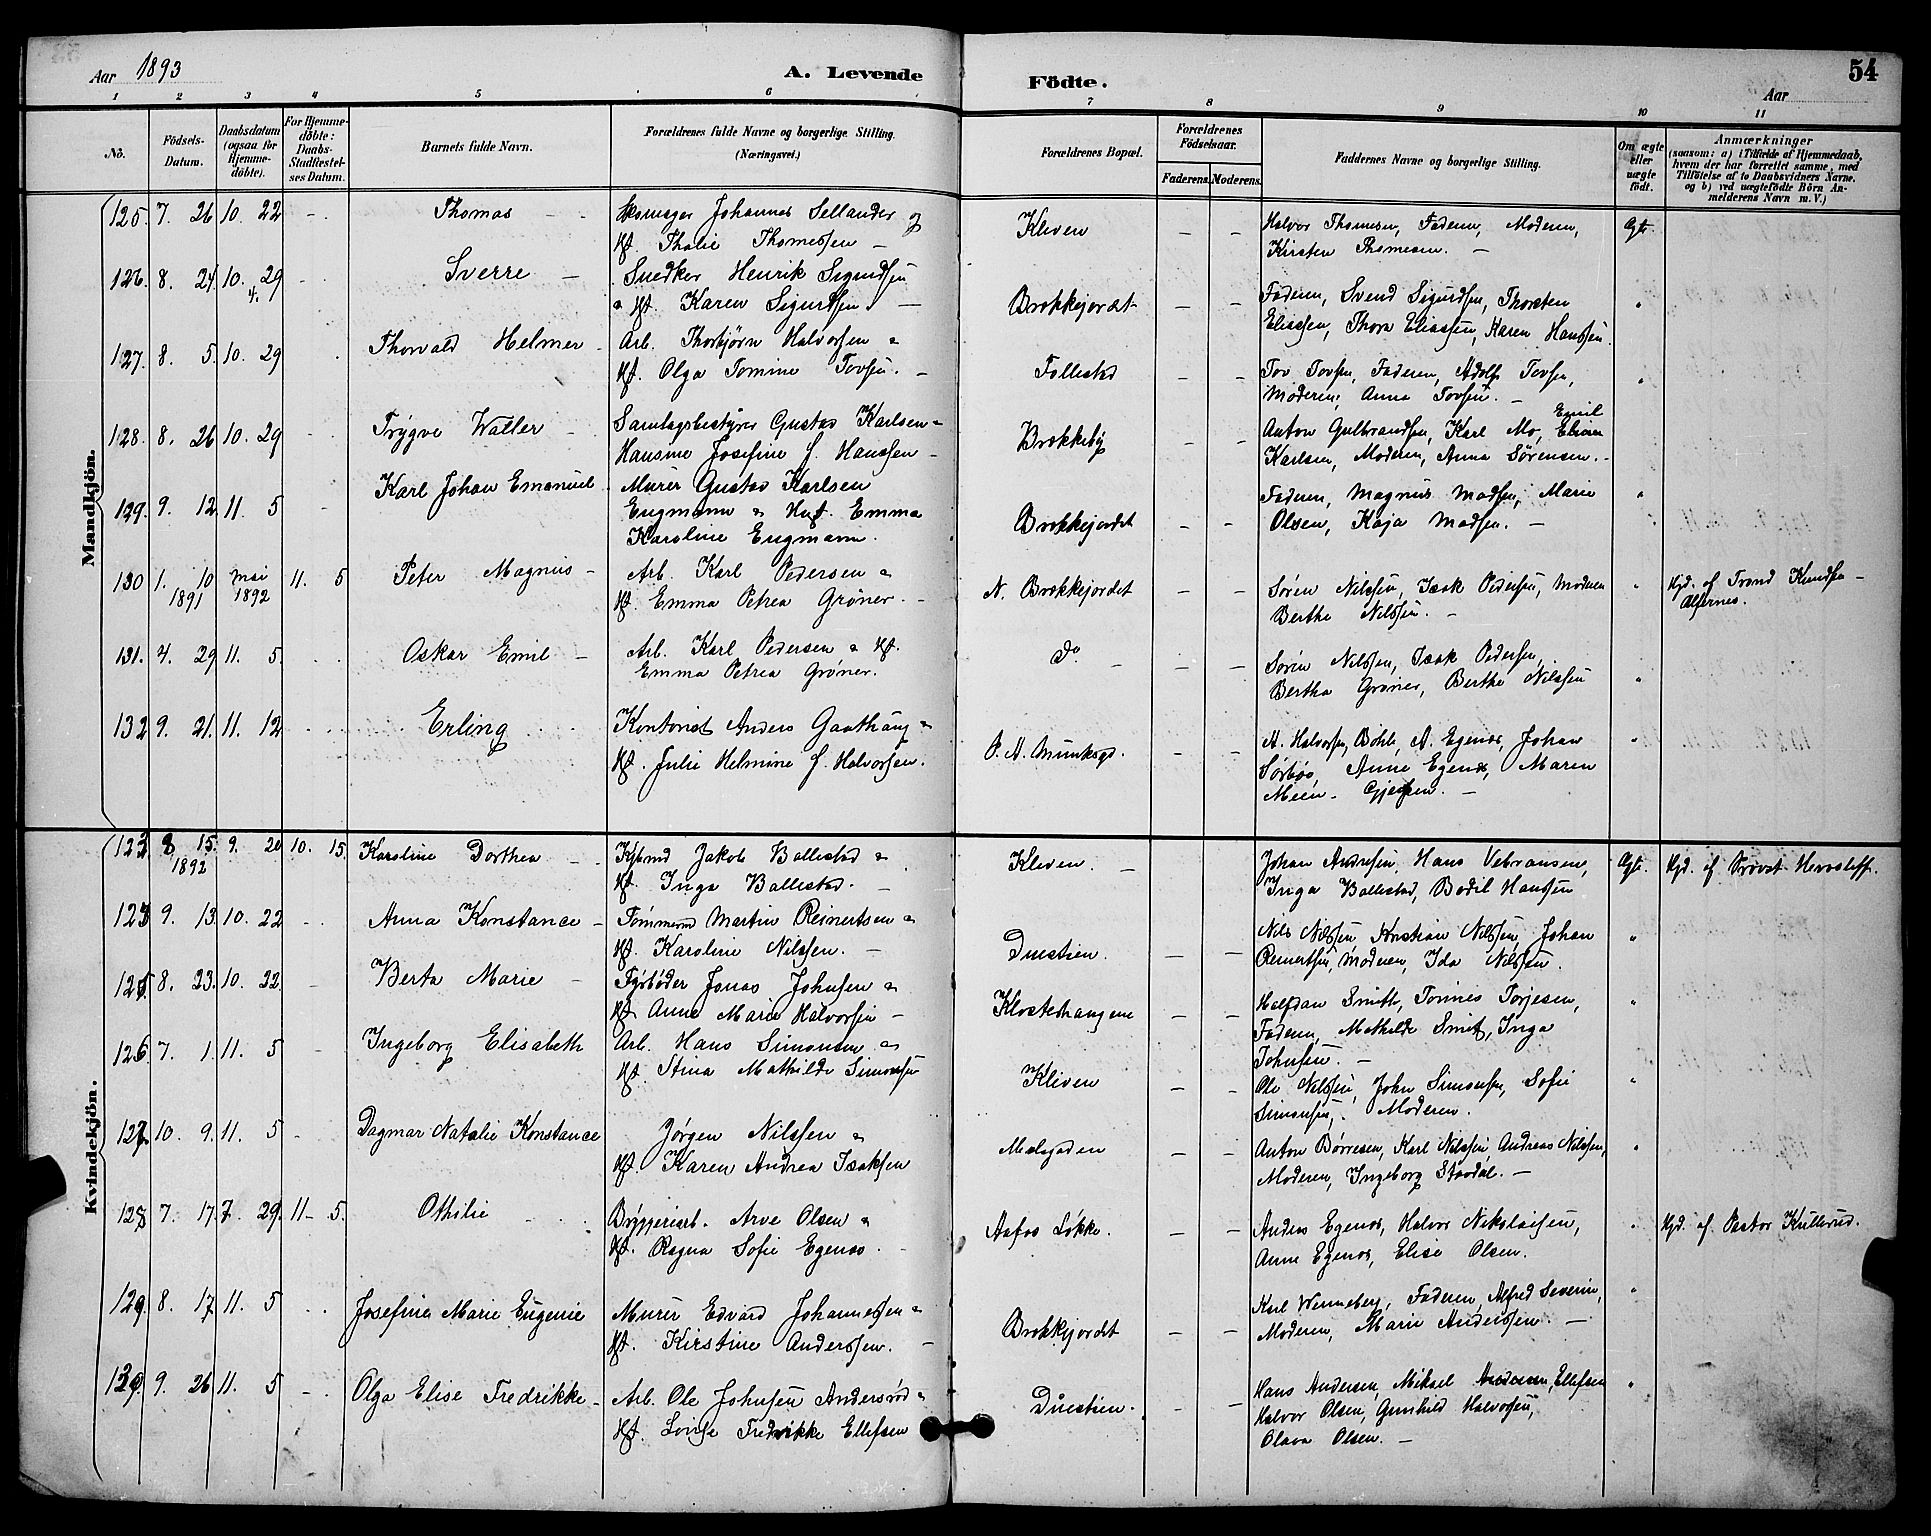 Aar 1893
A. Levende Födte.
54
Aar
1 2 3 4 5 6 7 8 9 10 11
No.
Födsels-Datum.
Daabsdatum (ogsaa for Hjemme-döbte).
For Hjemme-döbte: Daabs-Stadfæstel-ses Datum.
Barnets fulde Navn.
Forældrenes fulde Navne og borgerlige Stilling. (Næringsvei.)
Forældrenes Bopæl.
Forældrenes Födselsaar.
Faderens. Moderens.
Faddernes Navne og borgerlige Stilling.
Om ægte eller uægte födt.
Anmærkninger (saasom: a) i Tilfælde af Hjemmedaab, hvem der har forrettet samme, med Tilföielse af to Daabsvidners Navne. og b) ved uægtefödte Börn An-melderens Navn m. V.)
Mandkjön.
125. 7. 26 10. 22 - Thomas - Skomager Johannes Sellander &
Hf. Thalie Thomessen - Kliven - - Halvor Thomesen, Faderen, Moderen,
Kirsten Thomesen. - Ægte.
126. 8. 24. 10. 29 - Sverre - Snedker Henrik Sigurdsen
4.
" Hf. Karen Sigurdsen. - Brokkejordet - - Faderen, Svend Sigurdsen, Thorsten
Eliassen, Thora Eliassen, Karen Hanssen. "
127. 8. 5. 10. 29 Thorvald Helmer - Arb. Thorbjørn Halvorsen "
Hf. Olga Tomine Tovsen. - Follestad - - Tov Tovsen, Faderen, Adolf Tovsen,
Moderen, Anna Tovsen. - "
128. 8. 26 10. 29 Trygve Walter - Samlagsbestyrer Gustav Karlsen "
Hansine Josefine f. Hanssen - Brokkeby - - Anton Gulbrandsen, Karl Mo, Emil
Karlsen, Moderen, Anna Sørensen. -
129. 9. 12. 11 5 Karl Johan Emanuel Murer Gustav Karlsen
Engmann " Hust. Emma
Karoline Engmann. Brokkejordet - - Faderen, Magnus Madsen, Marie
Olsen, Kaja Madsen. - "
130 1. 10 1891 Mai 1892 11. 5 Peter Magnus - Arb. Karl Pedersen "
Hf. Emma Petrea Grøner. - N. Brokkejordet - - Søren Nilssen, Isak Pedersen, Moderen
Berthe Nilssen. - " Hjd. af Trond Knudsen -
Alfernes.
131. 4. 29 11. 5. Oskar Emil - Arb. Karl Pedersen " Hf.
Emma Petrea Grøner. do - - - Søren Nilssen, Isak Pedersen,
Bertha Grøner, Berthe Nilssen "
132 9. 21. 11. 12 Erling Kontorist Anders Gaathaug "
Hf. Julie Helmine f. Halvorsen. P. A. Munksgd. - - A. Halvorsen, Böhle, A. Egenæs, Johan
Sørbøe, Anne Egenæs, Maren
Meen - Gjersen. - "
Kvindekjön.
123 8 15. 1892 9. 20 10. 15. Karoline Dorthea - Kjøbmd Jakob Ballestad "
Hf. Inga Ballestad. - Kliven. - Johan Andresen, Hans Vebransen,
Inga Ballestad, Bodil Hanssen Ægte. Hjd. af Provst Hvosleff.
123 9. 13. 10. 22 Anna Konstance - Tømmermd Martin Reinertsen "
Hf. Karoline Nilssen. - Duestien. - - Nils Nilssen, Kristian Nilssen, Johan
Reinertsen, Moderen, Ida Nilssen. "
125. 8. 23. 10. 22. Berta Marie - Fyrbøder Jonas Johnsen "
Hf. Anne Marie Halvorsen - Klosterhaugene - - Halfdan Smith, Tønnes Torjesen,
Faderen, Mathilde Smit, Inga
Johnsen. - "
126 7. 1. 11. 5 Ingeborg Elisabeth Arb. Hans Simonsen "
Hf. Stina Mathilde Simonsen Kliven - - Ole Nilssen, John Simonsen, Sofie
Simonsen, Moderen. "
127. 10. 9. 11. 5 Dagmar Natalie Konstance Jørgen Nilssen "
Hf. Karen Andrea Isaksen Mælagaden - - Anton Børresen, Karl Nilssen, Andreas Nilssen,
Moderen, Ingeborg Stordal. - "
128 7. 17. 7. 29. 11 - 5. Othilie Bryggeriarb. Arve Olsen "
Hf. Ragna Sofie Egenæs. - Aafos Løkke. - - Anders Egenæs, Halvor Nikolaisen,
Anne Egenæs, Elise Olsen. " Hjd. af Pastor Kullerud.
129. 8. 17 11. 5 Josefine Marie Eugenie Murer Edvard Johannessen "
Hf. Kirstine Anderssen. - Brokkejordet - - Karl Wenneberg, Faderen, Alfred Severin,
Moderen, Marie Anderssen. - "
129. 9. 26 11. 5 Olga Elise Fredrikke - Arb. Ole Johnsen Andersrød "
Hf. Lovise Fredrikke Ellefsen Duestien. - - Hans Andersen, Mikael Andersen, Ellefsen
Halvor Olsen, Gunhild Halvorsen,
Olava Olsen. - "